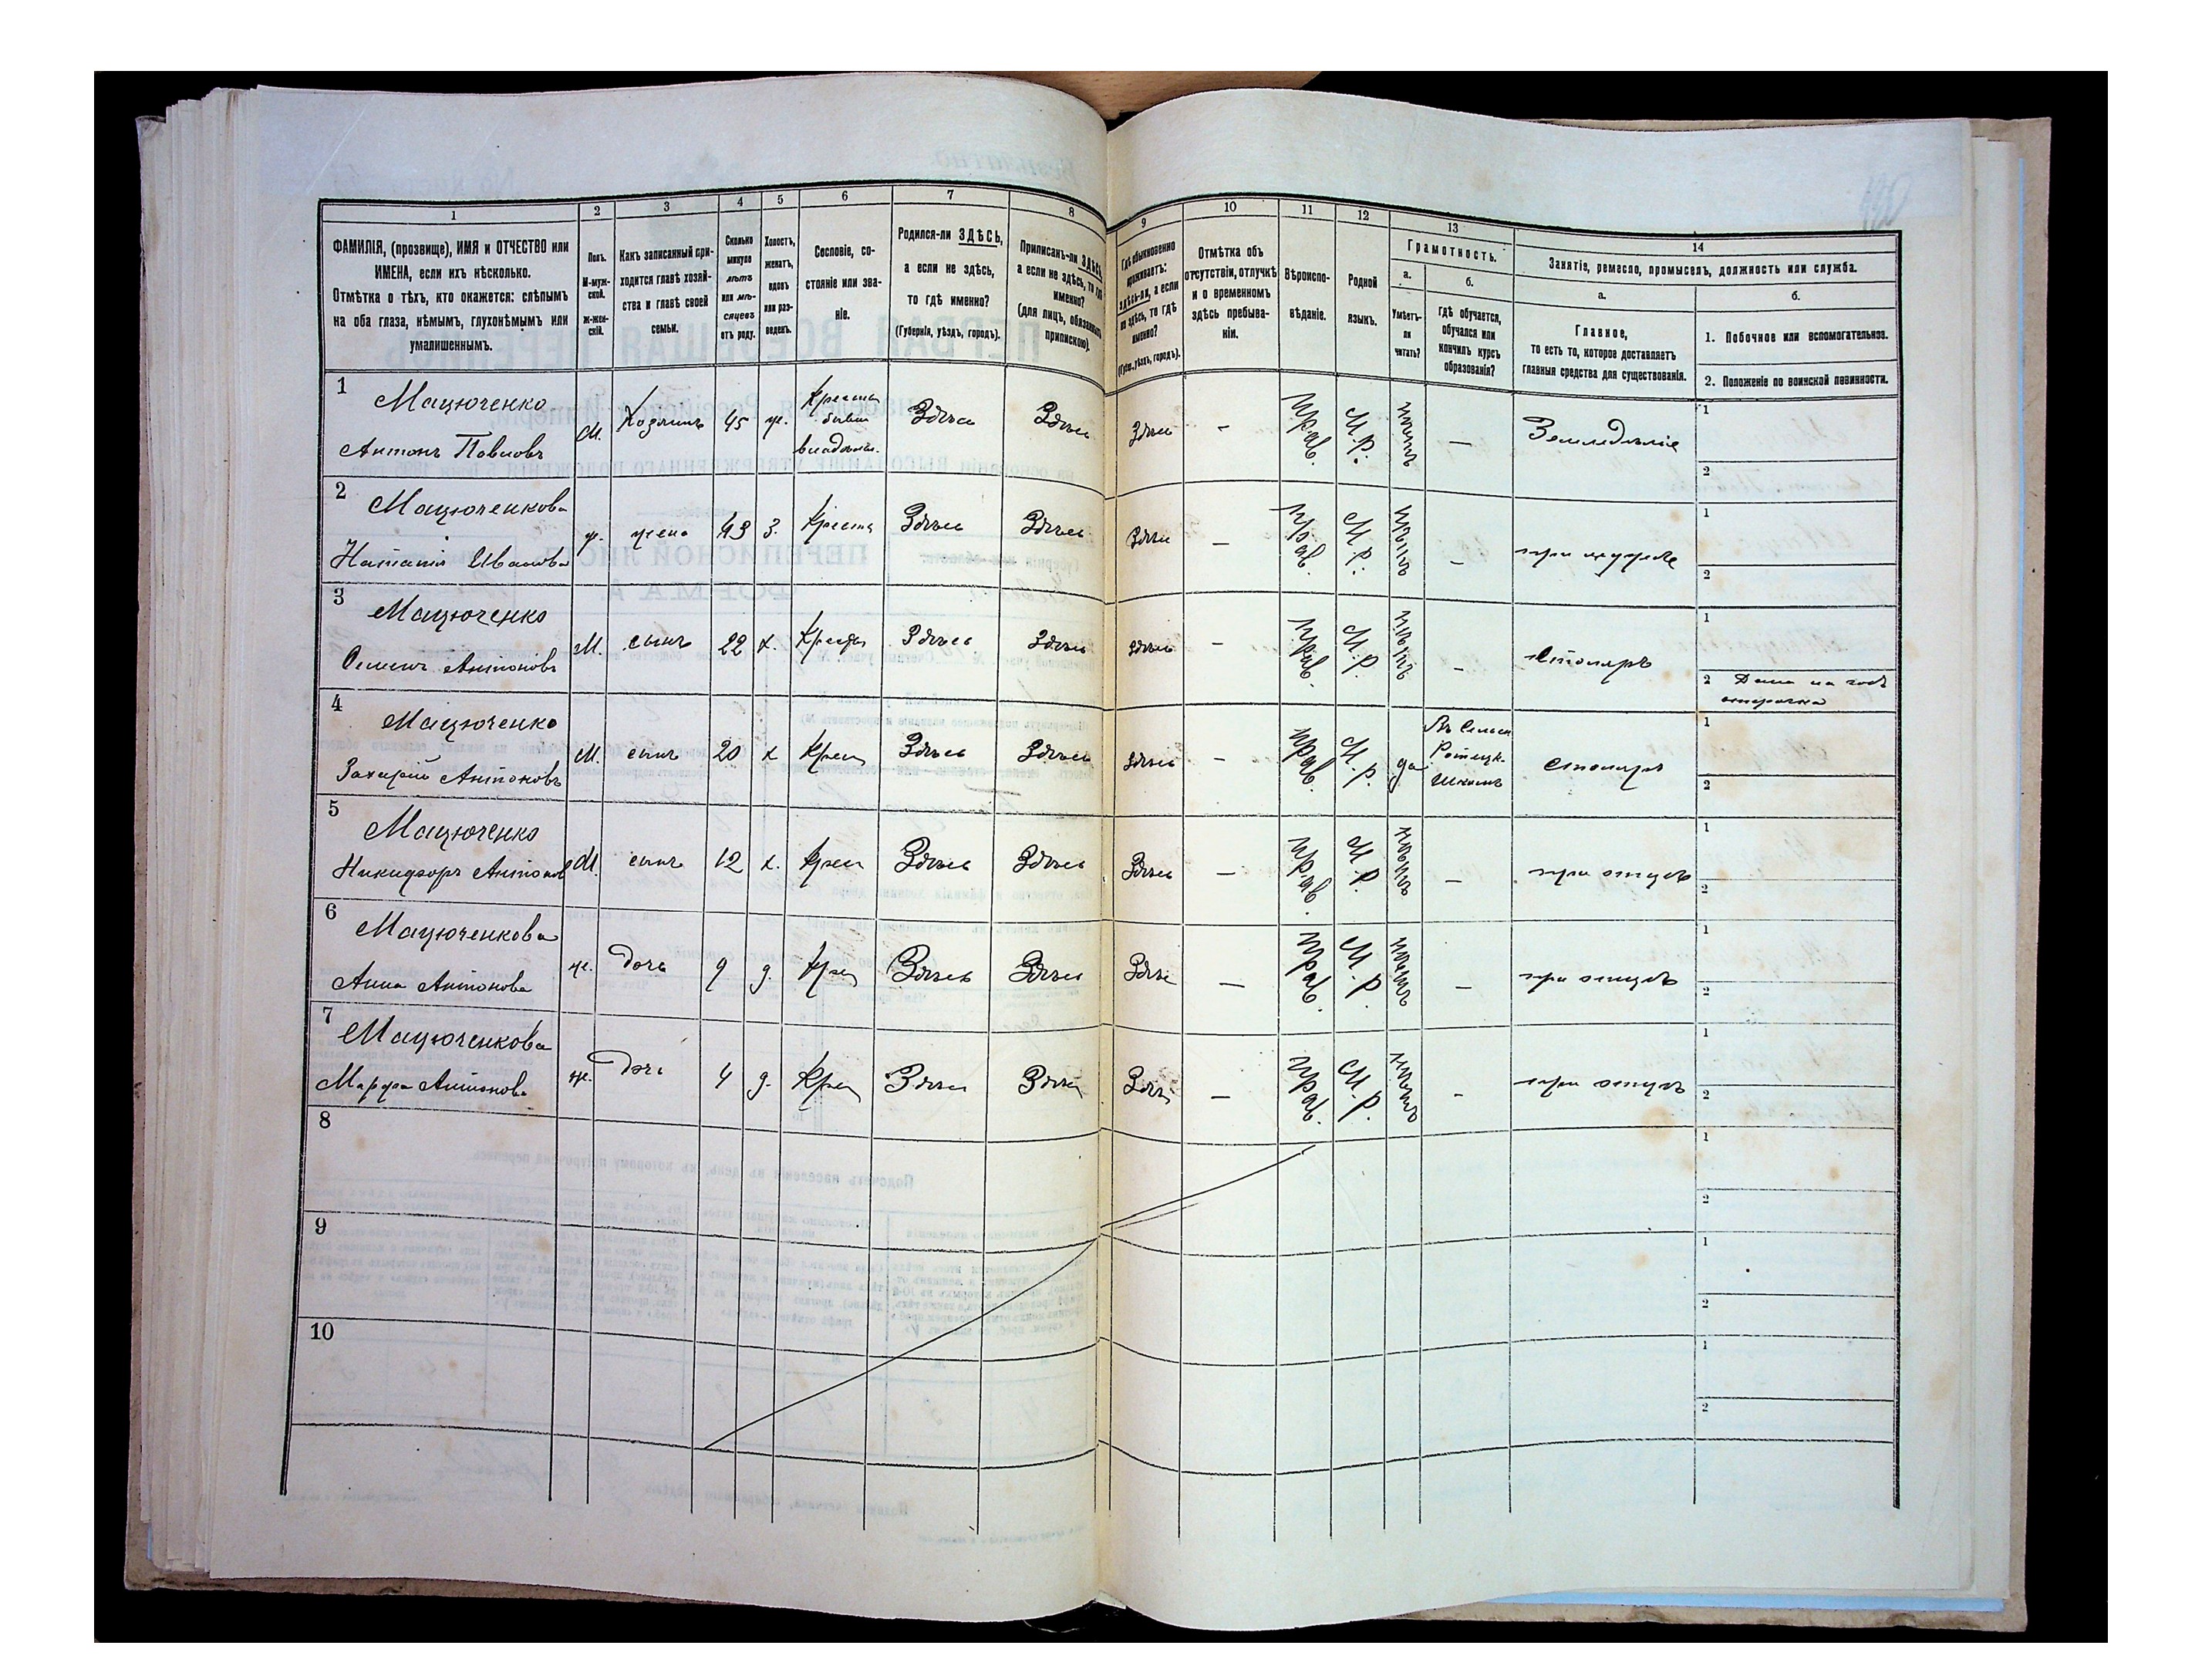 1 2 3 4 5 6 7 8 9 10 11 12 13 14
ФАМИЛІЯ, (прозвище), ИМЯ и ОТЧЕСТВО или
ИМЕНА, если ихъ нѣсколько.
Отмѣтка о тѣхъ, кто окажется: слѣпымъ
на оба глаза, нѣмымъ, глухонѣмымъ или
умалишеннымъ.
Полъ.
М-муж-
ской.
ж-жен-
скій.
Какъ записанный при-
ходится главѣ хозяй-
ства и главѣ своей
семьи.
Сколько
минуло
лѣтъ
или мѣ-
сяцевъ
отъ роду.
Холостъ,
женатъ,
вдовъ
или раз-
веденъ.
Сословіе, со-
стояніе или зва-
ніе.
Родился-ли ЗДѢСЬ,
а если не здѣсь,
то гдѣ именно?
(Губернія, уѣздъ, городъ).
Приписанъ-ли ЗДѢСЬ,
а если не здѣсь, то гдѣ
именно?
(для лицъ, обязанныхъ
припискою).
Гдѣ обыкновенно
проживаетъ:
здѣсь-ли, а если
не здѣсь, то гдѣ
именно?
(Губ., уѣздъ, городъ).
Отмѣтка объ
отсутствіи, отлучкѣ
и о временномъ
здѣсь пребыва-
ніи.
Вѣроиспо-
вѣданіе.
Родной
языкъ.
Грамотность.
а.
Умѣетъ-
ли
читать?
б.
Гдѣ обучается,
обучался или
кончилъ курсъ
образованія?
Занятіе, ремесло, промыселъ, должность или служба.
а.
Главное,
то есть то, которое доставляетъ
главныя средства для существованія.
б.
1. Побочное или вспомогательное.
2. Положеніе по воинской повинности.
1 Мацюченко
Антонъ Павловъ М. Хозяинъ 45 ж. Крестьян бывш владѣльч. Здѣсь Здѣсь Здѣсь — прав. М.Р. нѣтъ — Земледѣліе 1
2
2 Мацюченкова
Наталія Иванова ж. жена 43 З. Крестья Здѣсь Здѣсь Здѣсь — прав. М.Р. нѣтъ — при мужѣ 1
2
3 Мацюченко
Семенъ Антоновъ М. сынъ 22 х. Крестья Здѣсь Здѣсь Здѣсь — прав. М.Р. нѣтъ — столяръ 1
2 Дана на годъ
отсрочка
4 Мацюченко
Захарій Антоновъ М. сынъ 20 х Крест Здѣсь Здѣсь Здѣсь — прав. М.Р. да Въ Сельск
школѣ столяръ 1
2
5 Мацюченко
Никифоръ Антонов М. сынъ 12 х. Крест Здѣсь Здѣсь Здѣсь — прав. М.Р. нѣтъ — при отцѣ 1
2
6 Мацюченкова
Анна Антонова ж. дочь 9 д. Крес Здѣсь Здѣсь Здѣсь — прав. М.Р. нѣтъ — при отцѣ 1
2
7 Мацюченкова
Марфа Антонова ж. дочь 4 д. Крес Здѣсь Здѣсь Здѣсь — прав. М.Р. нѣтъ — при отцѣ 1
2
8 1
2
9 1
2
10 1
2